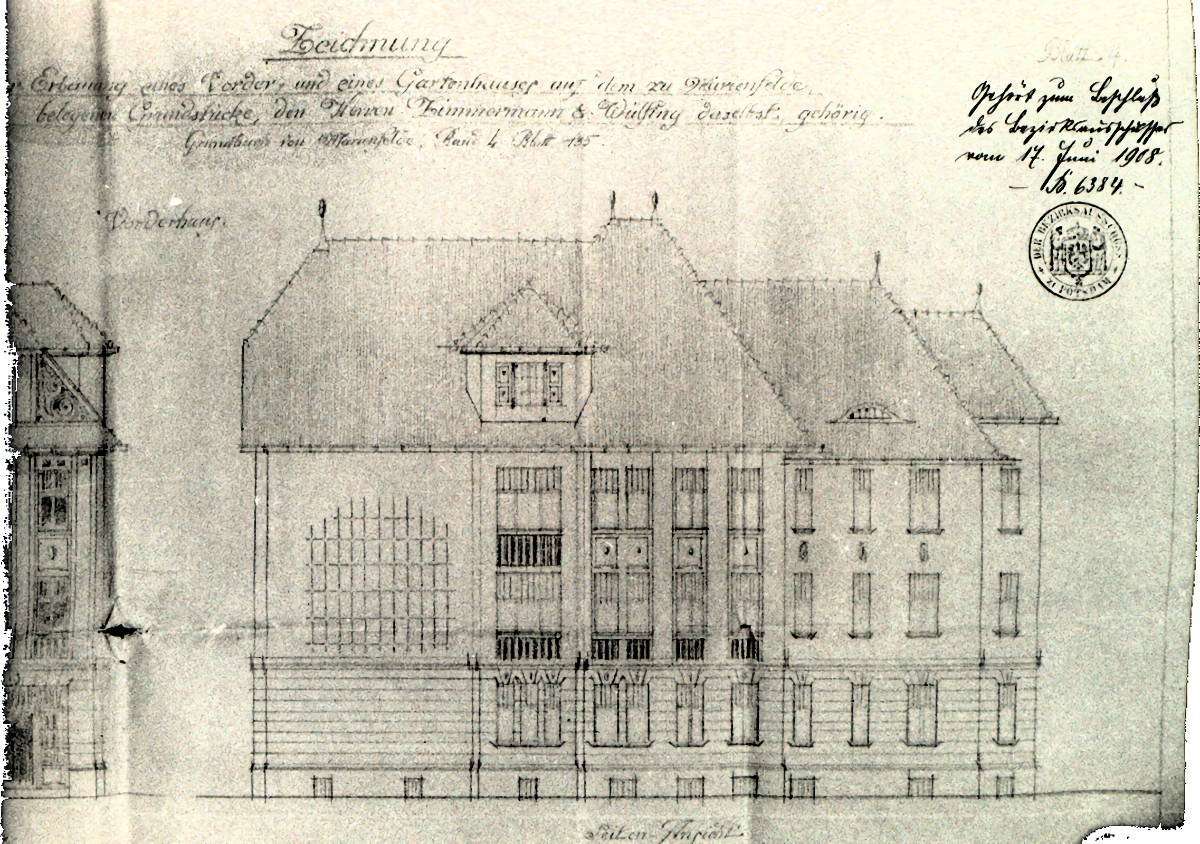 Zeichnung
Blatt 4.
r Erbauung eines Vorder- und eines Gartenhauses auf dem zu Marienfelde,
belegenen Grundstücke, den Herren Zimmermann & Wülfing daselbst, gehörig.
Grundbuch von Marienfelde, Band 4 Blatt 135.
Gehört zum Beschluß
des Bezirksausschusses
vom 17. Juni 1908.
— B. 6384. —
DER BEZIRKSAUSSCHUSS
ZU POTSDAM
Vorderhaus.
Seiten-Ansicht.